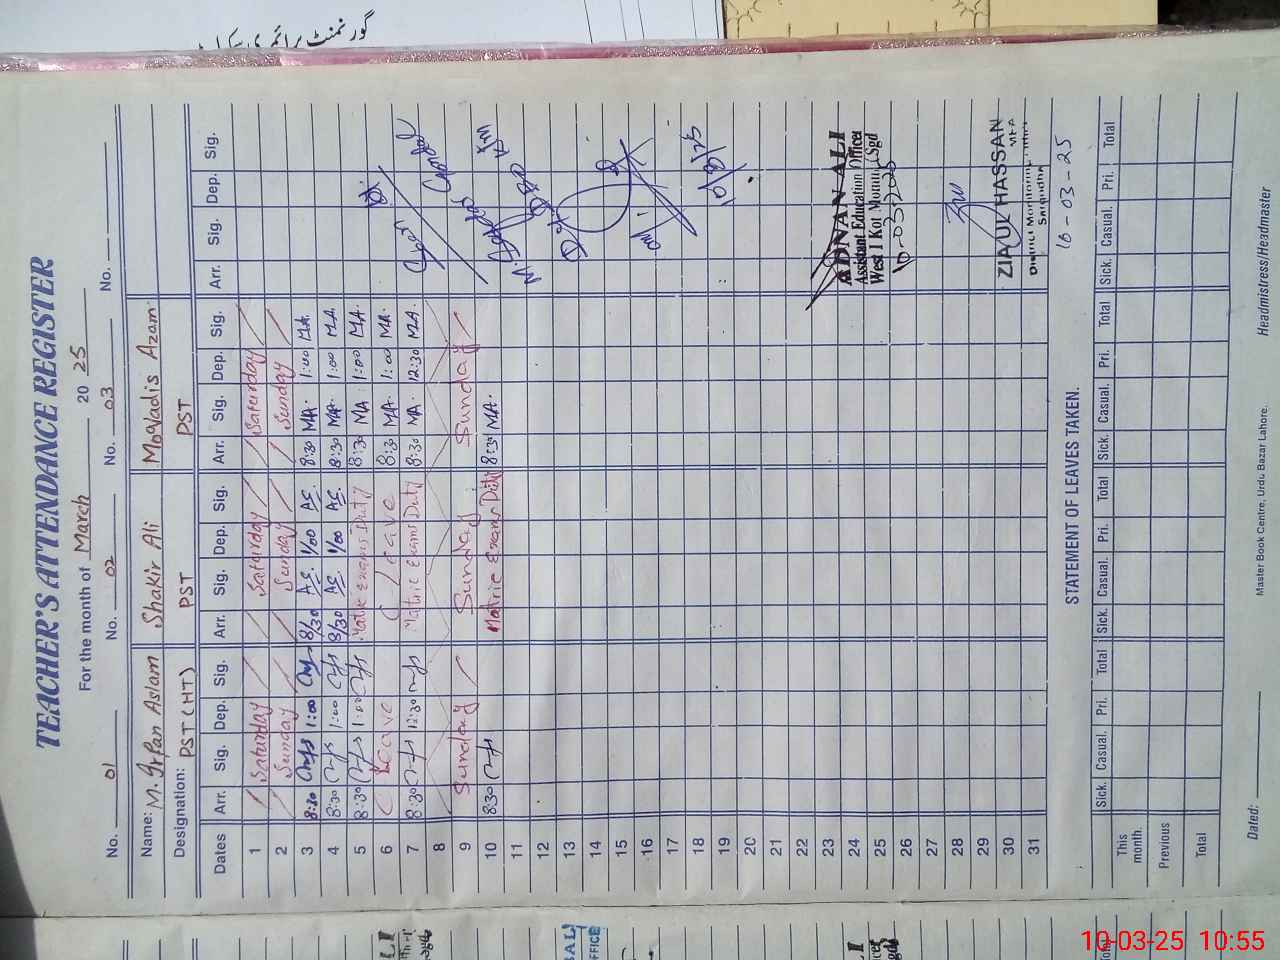 گورنمنٹ پرائمری
TEACHER'S ATTENDANCE REGISTER
For the month of March 2025
No. 01 No. 02 No. 03 No.
Name: M. Irfan Aslam Shakir Ali Moqadis Azam
Designation: PST (HT) PST PST
Dates Arr. Sig. Dep. Sig. Arr. Sig. Dep. Sig. Arr. Sig. Dep. Sig. Arr. Sig. Dep. Sig.
1 Saturday Saturday Saturday
2 Sunday Sunday Sunday
3 8:30 1:00 8/30 A.S. 1/00 A.S. 8:30 MA. 1:00 MA.
4 8:30 1:00 8/30 A.S. 1/00 A.S. 8:30 MA. 1:00 MA.
5 8:30 1:00 Matric Exams Duty 8:30 MA. 1:00 MA.
6 Leave C/Leave 8:30 MA. 1:00 MA.
7 8:30 12:30 Matric Exams Duty 8:30 MA. 12:30 MA.
8
9 Sunday Sunday Sunday
10 8:30 Matric Exams Duty 8:30 MA.
11
12
13
14
15
16
17
18
19 10/3/25
20
21
22
23 ADNAN ALI
24 Assistant Education Officer
25 West I Kot Momin, Sgd
26 10-03-2025
27
28
29
30 ZIA UL HASSAN
MEA
31 District Monitoring
Sargodha
10-03-25
STATEMENT OF LEAVES TAKEN.
Sick. Casual. Pri. Total Sick. Casual. Pri. Total Sick. Casual. Pri. Total Sick. Casual. Pri. Total
This month.
Previous
Total
Dated: Master Book Centre, Urdu Bazar Lahore. Headmistress/Headmaster
10-03-25 10:55